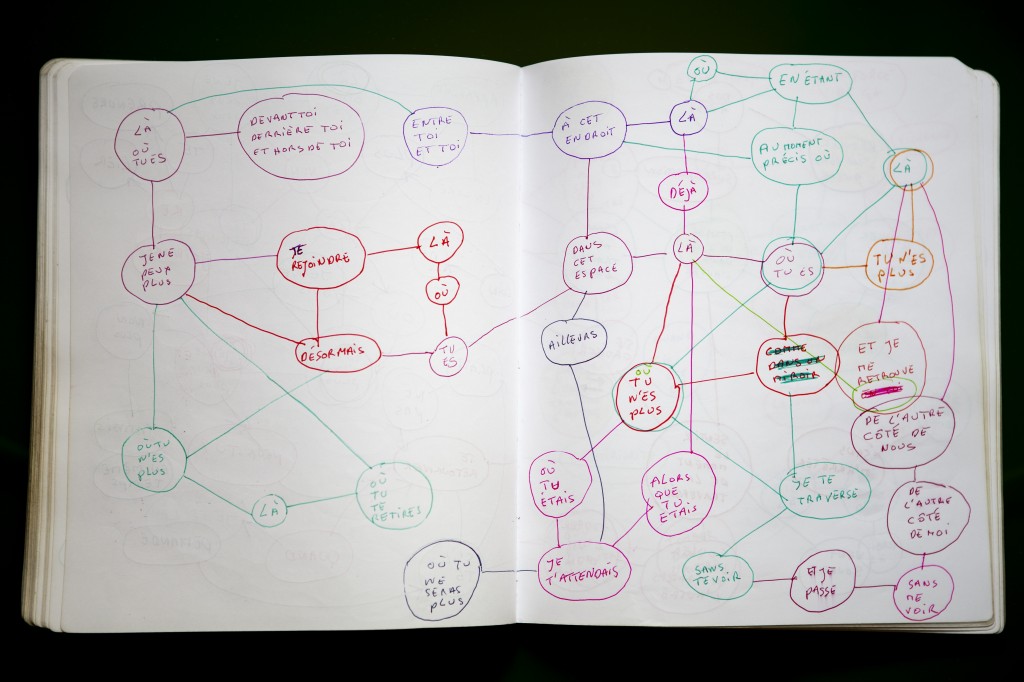 LÀ
OÙ
TU ES
DEVANT TOI
DERRIÈRE TOI
ET HORS DE TOI
ENTRE
TOI
ET TOI
JE NE
PEUX
PLUS
TE
REJOINDRE
LÀ
OÙ
DÉSORMAIS
TU
ES
OÙ TU
N'ES
PLUS
LÀ
OÙ
TU
TE
RETIRES
OÙ TU
NE
SERAS
PLUS
À CET
ENDROIT
LÀ
OÙ
EN ÉTANT
AU MOMENT
PRÉCIS OÙ
LÀ
DÉJÀ
DANS
CET
ESPACE
LÀ
OÙ
TU ES
TU N'ES
PLUS
AILLEURS
OÙ
TU
N'ES
PLUS
COMME
DANS UN
MIROIR
ET JE
ME
RETROUVE
DE L'AUTRE
CÔTÉ DE
NOUS
OÙ
TU
ÉTAIS
ALORS
QUE
TU
ÉTAIS
JE TE
TRAVERSE
DE
L'AUTRE
CÔTÉ
DE MOI
JE
T'ATTENDAIS
SANS
TE VOIR
ET JE
PASSE
SANS
ME
VOIR